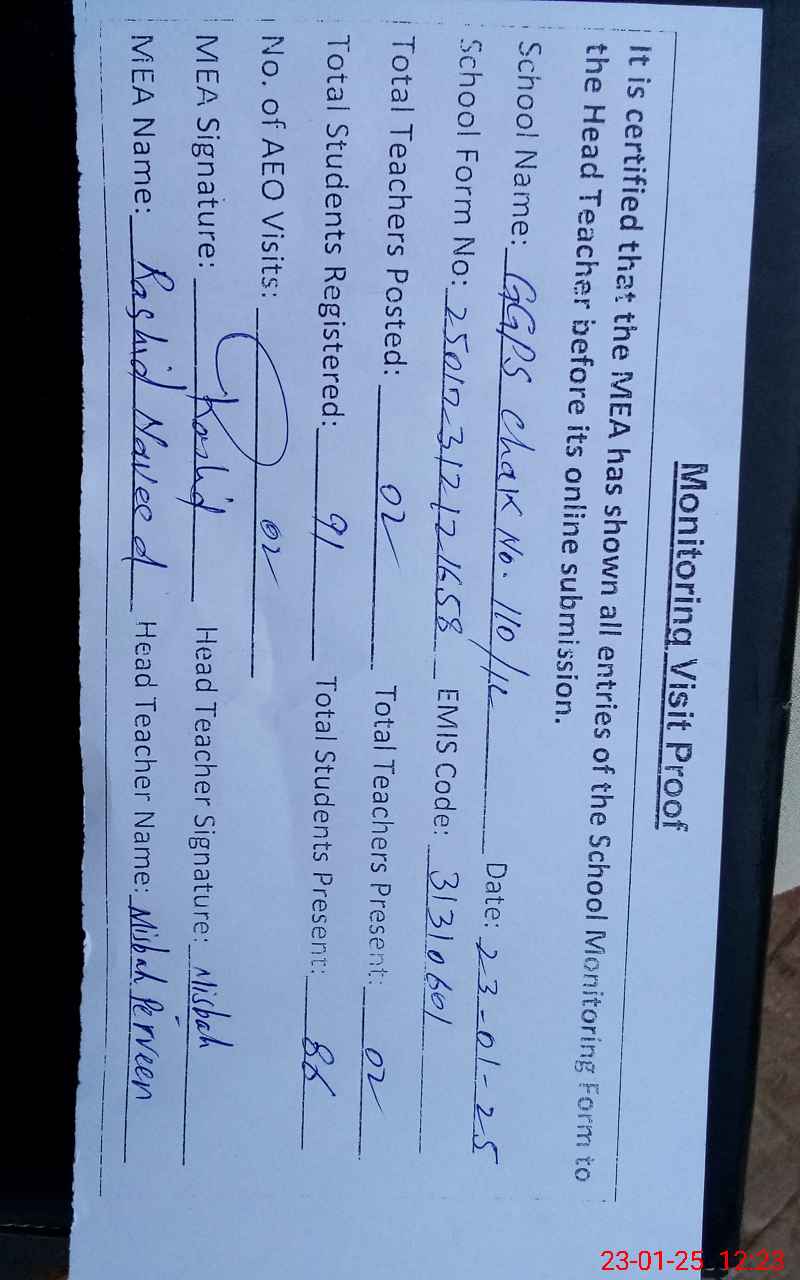 Monitoring Visit Proof
It is certified that the MEA has shown all entries of the School Monitoring Form to
the Head Teacher before its online submission.
School Name: GGPS Chak No. 110/1L Date: 23-01-25
School Form No: EMIS Code: 31310601
Total Teachers Posted: 02 Total Teachers Present: 02
Total Students Registered: 91 Total Students Present:
No. of AEO Visits: 02
MEA Signature: Rashid Head Teacher Signature: Misbah
MEA Name: Rashid Naveed Head Teacher Name: Misbah Perveen
23-01-25 12:23